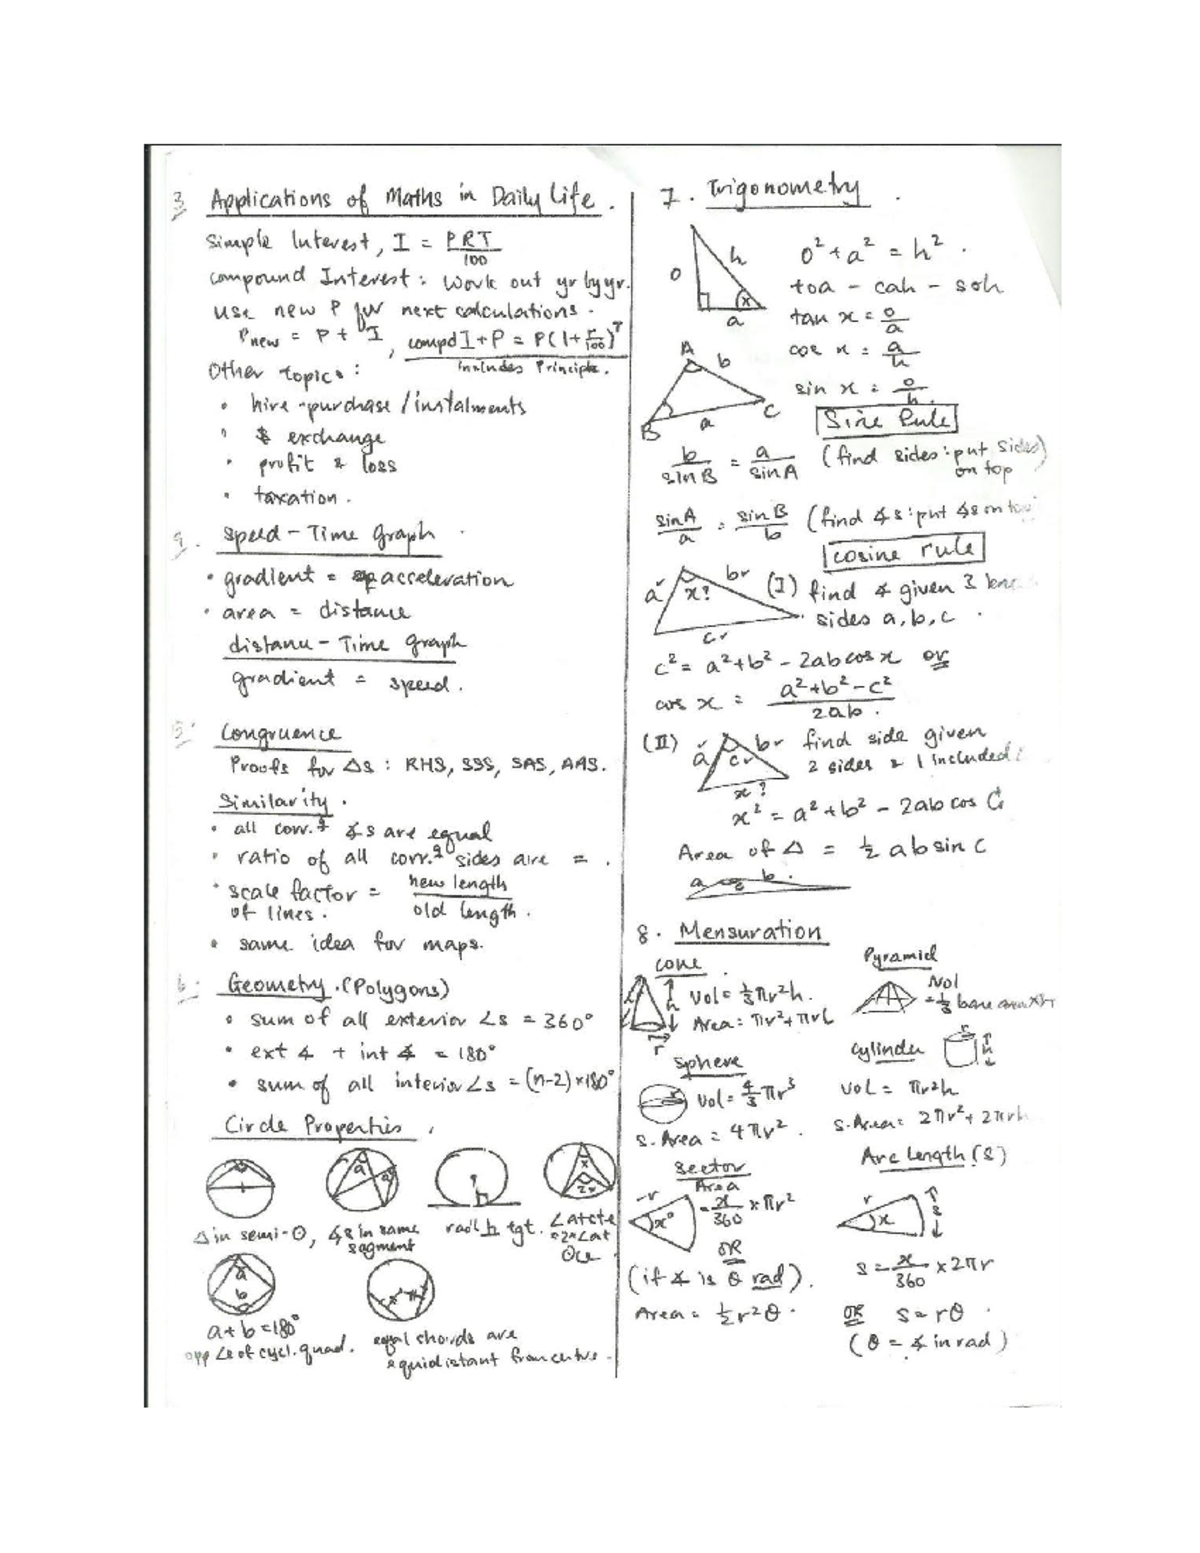 3 Applications of Maths in Daily Life.
Simple Interest, I = PRT/100
Compound Interest: Work out yr by yr.
use new P for next calculations.
Pnew = P + I, compd I + P = P(1 + r/100)^T
includes Principle.
Other topics:
• hire-purchase / instalments
• $ exchange
• profit & loss
• taxation.
4. Speed-Time Graph
• gradient = acceleration
• area = distance
distance-Time graph
gradient = speed.
5. Congruence
Proofs for △s: RHS, SSS, SAS, AAS.
Similarity.
• all corr.g ∡s are equal
• ratio of all corr.g sides are = .
• scale factor = new length / old length.
of lines.
• same idea for maps.
6. Geometry. (Polygons)
• sum of all exterior ∠s = 360°
• ext ∡ + int ∡ = 180°
• sum of all interior ∠s = (n-2)×180°
Circle Properties
a a
x 2x
△ in semi-⊙, ∡s in same segment
rad ⊥ tgt. ∠ at ctr = 2×∠ at ⊙ce
a
b
a + b = 180°
opp ∠s of cycl. quad.
equal chords are
equidistant from centre.
7. Trigonometry
o h a x
o² + a² = h².
toa - cah - soh
tan x = o/a
cos x = a/h
sin x = o/h
A b C a B
Sine Rule
b/sin B = a/sin A (find sides: put sides on top)
sin A/a = sin B/b (find ∡s: put ∡s on
cosine rule
a x? b c
(I) find ∡ given 3
sides a, b, c.
c² = a² + b² - 2ab cos x or
cos x = (a² + b² - c²)/2ab.
(II) a b c x? find side given
2 sides & 1 included
x² = a² + b² - 2ab cos C
Area of △ = ½ ab sin C
a b c
8. Mensuration
Cone
h r
Vol = ⅓πr²h.
Area = πr² + πrl
Pyramid
Vol
= ⅓ base area × h
Sphere
r
Vol = 4/3 πr³
S. Area = 4πr².
Cylinder
r h
Vol = πr²h
S. Area = 2πr² + 2πrh
Sector
Area
r x°
= x/360 × πr²
OR
(if ∡ is θ rad).
Area = ½r²θ.
Arc Length (S)
r x s
s = x/360 × 2πr
OR s = rθ.
(θ = ∡ in rad)